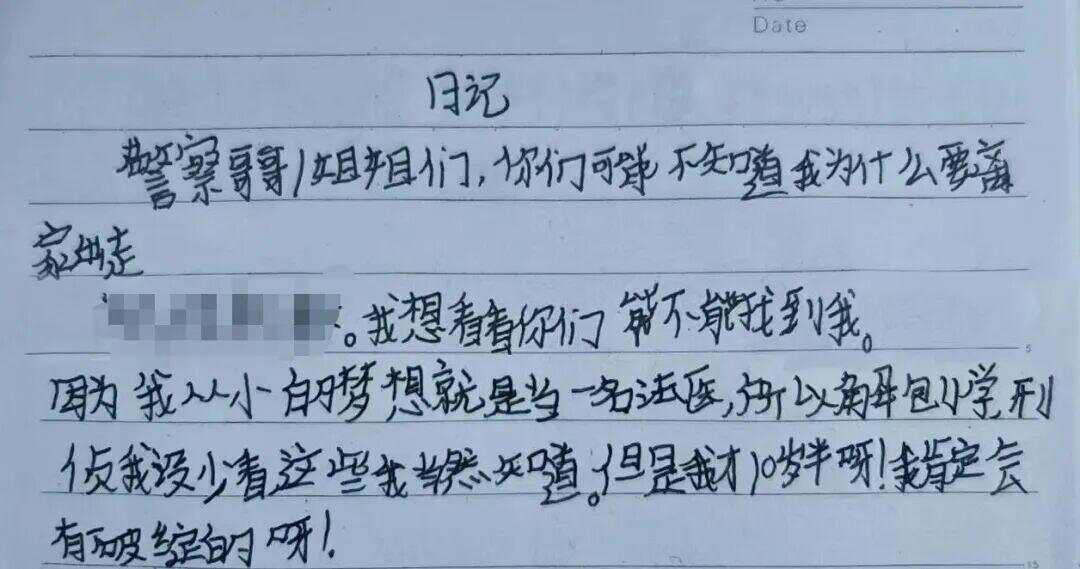 Date
日记
警察哥哥/姐姐们，你们可能不知道我为什么要离
家出走
。我想看看你们能不能找到我。
因为我从小的梦想就是当一名法医，所以解包小学刑
侦我没少看，这些我当然知道。但是我才10岁半呀！我肯定会
有破绽的呀！